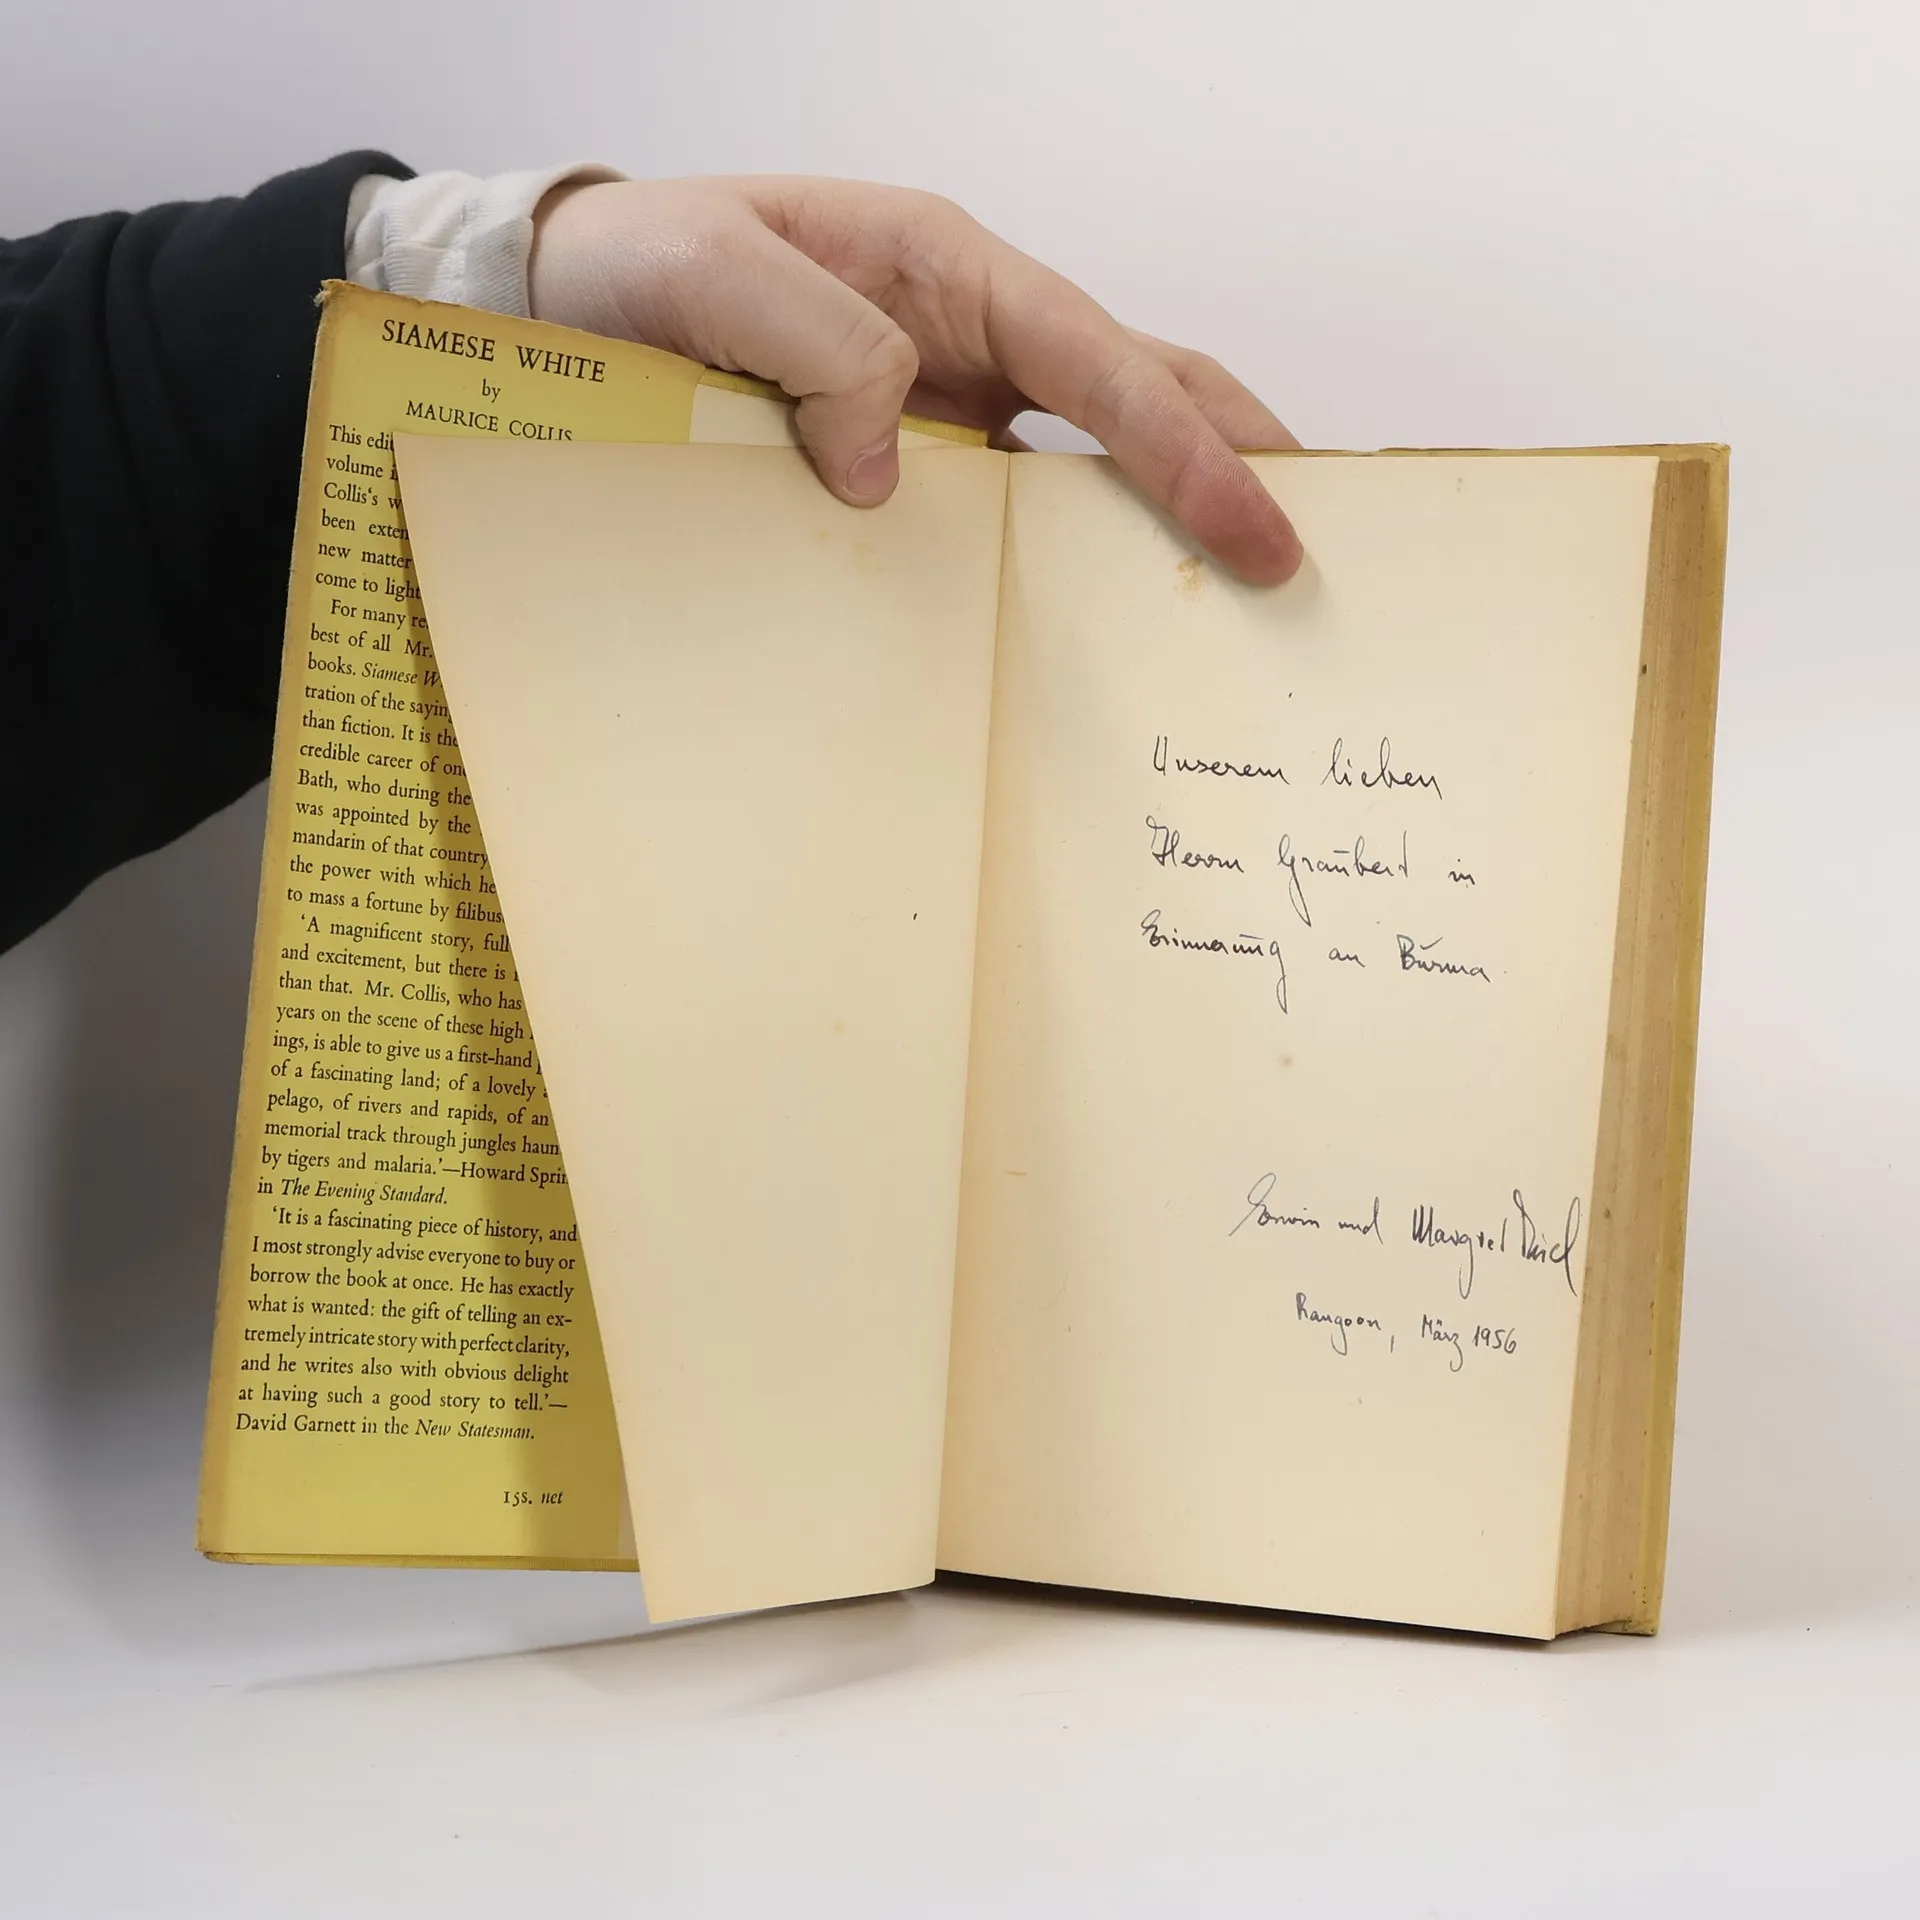 SIAMESE WHITE
by
MAURICE COLLIS
This edi
volume i
Collis's w
been exten
new matter
come to light
For many re
best of all Mr.
books. Siamese W
tration of the saying
than fiction. It is the
credible career of one
Bath, who during the
was appointed by the
mandarin of that country
the power with which he
to mass a fortune by filibus
'A magnificent story, full
and excitement, but there is
than that. Mr. Collis, who has
years on the scene of these high
ings, is able to give us a first-hand
of a fascinating land; of a lovely a
pelago, of rivers and rapids, of an
memorial track through jungles haun
by tigers and malaria.'—Howard Sprin
in The Evening Standard.
'It is a fascinating piece of history, and
I most strongly advise everyone to buy or
borrow the book at once. He has exactly
what is wanted: the gift of telling an ex-
tremely intricate story with perfect clarity,
and he writes also with obvious delight
at having such a good story to tell.'—
David Garnett in the New Statesman.
15s. net
Unserem lieben
Herrn Graubert in
Erinnerung an Burma.
Erwin und Margret
Rangoon, März 1956